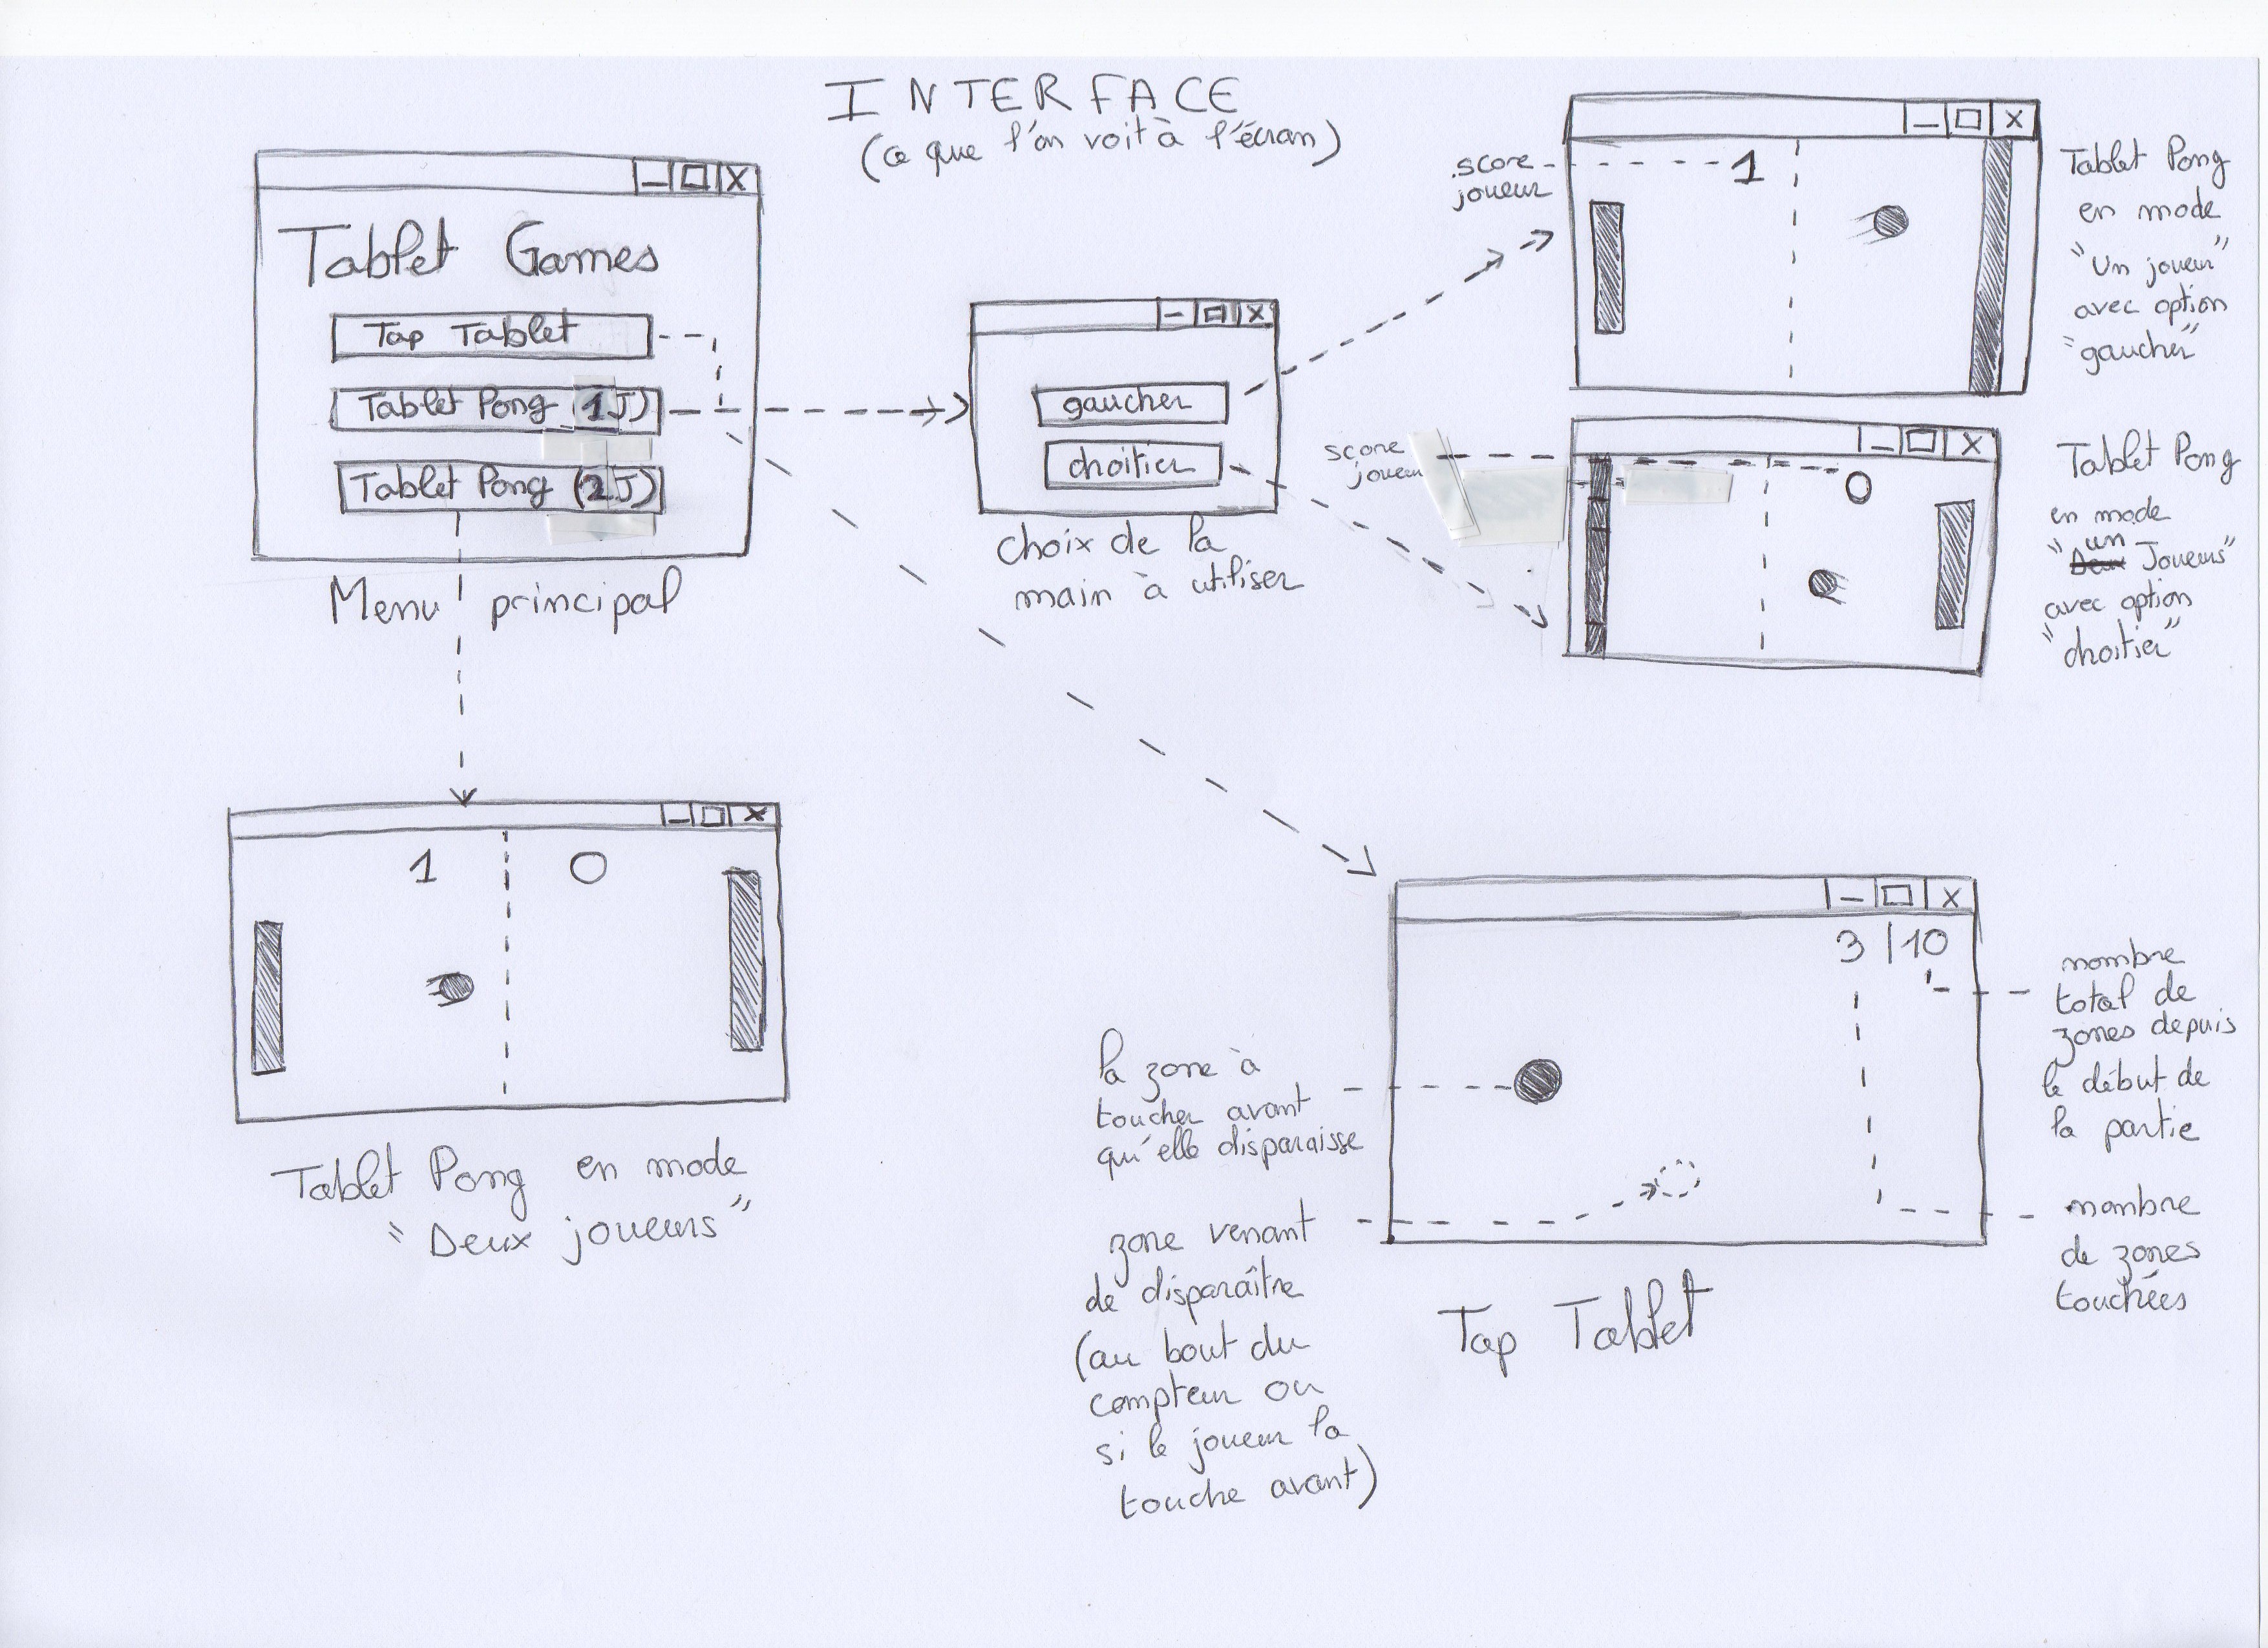 INTERFACE
(ce que l'on voit à l'écran)
Tablet Games
Tap Tablet
Tablet Pong (1J)
Tablet Pong (2J)
Menu principal
gaucher
droitier
choix de la
main à utiliser
score
joueur
1
Tablet Pong
en mode
"Un joueur"
avec option
"gaucher"
score
joueur
0
Tablet Pong
en mode
un
"Deux Joueurs"
avec option
"droitier"
1 0
Tablet Pong en mode
"Deux joueurs"
3 | 10
nombre
total de
zones depuis
le début de
la partie
nombre
de zones
touchées
la zone à
toucher avant
qu'elle disparaisse
zone venant
de disparaître
(au bout du
compteur ou
si le joueur la
touche avant)
Tap Tablet